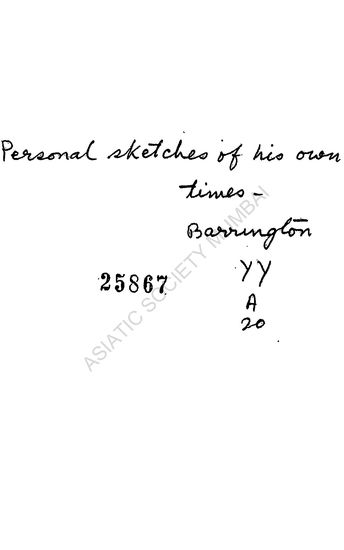 Personal sketches of his own
times -
Barrington
YY
25867
A
20
ASIATIC SOCIETY MUMBAI